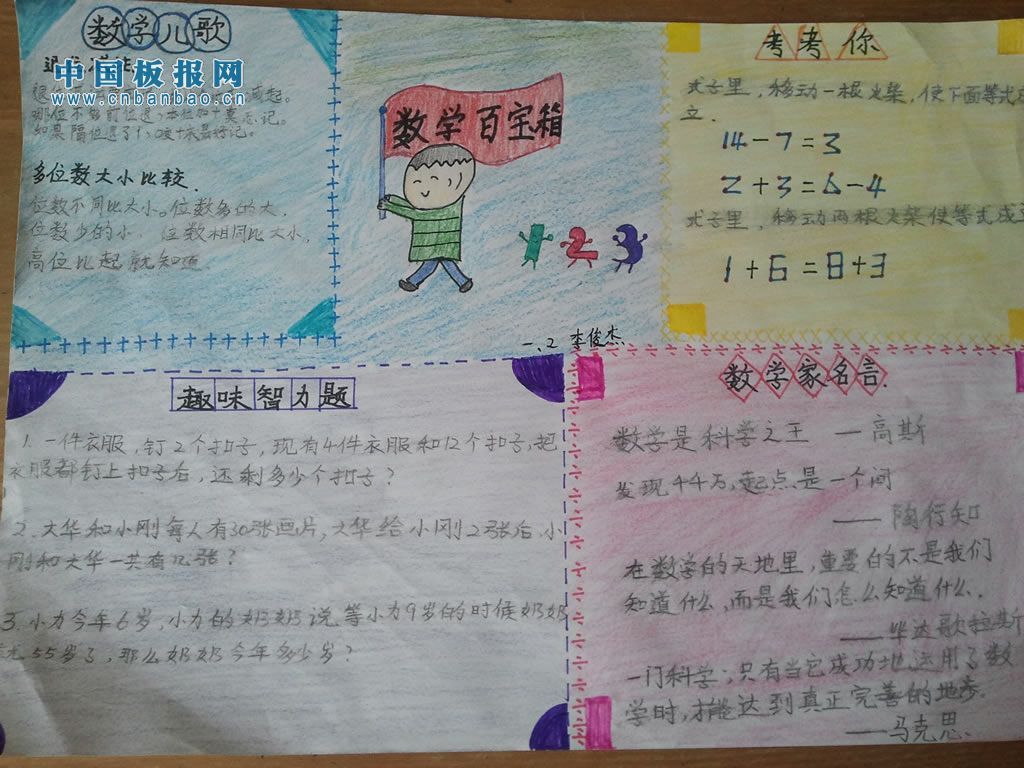 数学儿歌
中国板报网
www.cnbanbao.cn
多位数大小比较.
位数不同比大小。位数多的大.
位数少的小. 位数相同比大小,
高位比起就知道.
数学百宝箱
1 2 3
一.2 李俊杰
考考你
式子里,移动一根火柴,使下面等式成
立.
14-7=3
2+3=6-4
式子里,移动两根火柴使等式成立
1+6=8+3
趣味智力题
1. 一件衣服,钉2个扣子,现有4件衣服和12个扣子,把
衣服都钉上扣子后,还剩多少个扣子?
2. 大华和小刚每人有30张画片,大华给小刚2张后,小
刚和大华一共有几张?
3. 小力今年6岁,小力的奶奶说,等小力9岁的时候奶奶
就55岁了,那么奶奶今年多少岁?
数学家名言.
数学是科学之王 —高斯
发现千千万,起点是一个问
——陶行知
在数学的天地里,重要的不是我们
知道什么,而是我们怎么知道什么.
——毕达歌拉斯
一门科学;只有当它成功地运用了数
学时,才能达到真正完善的地步。
——马克思.